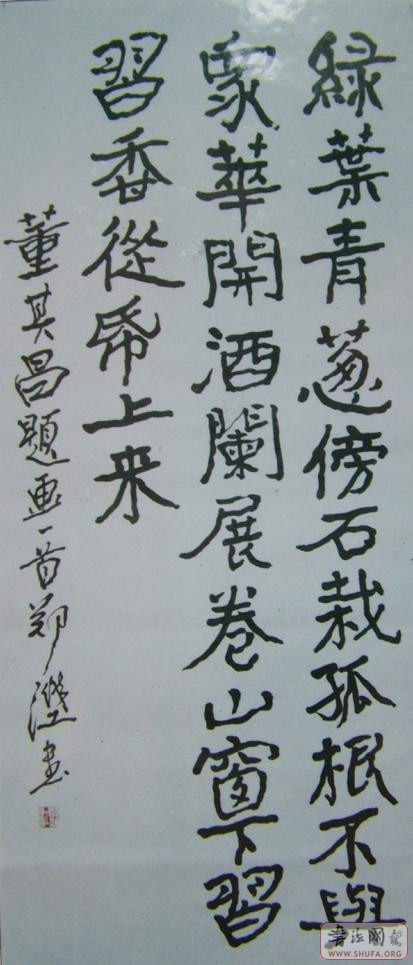 緑葉青葱傍石栽孤根不與
衆華開酒闌展卷山窗下習
習香從帋上来
董其昌題画一首鄭㴋书
书法网
WWW.SHUFA.ORG